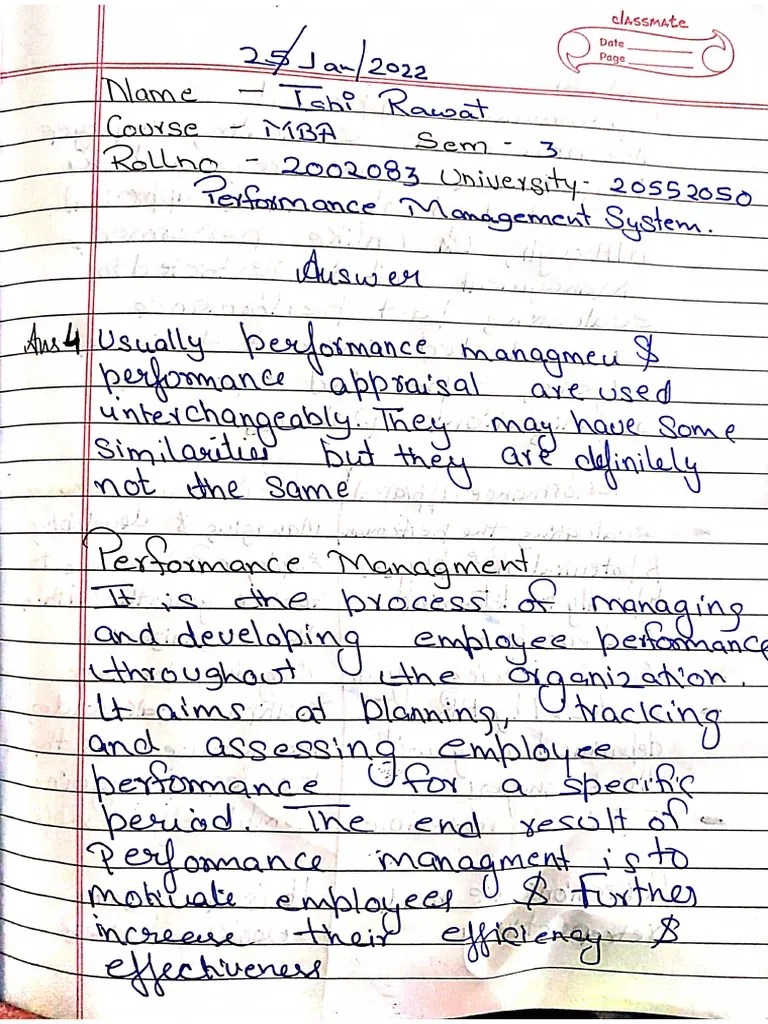 classmate
Date
Page
25/Jan/2022
Name - Ishi Rawat
Course - MBA Sem - 3
Rollno - 2002083 University - 20552050
Performance Management System.
Answer
Ans 4 Usually performance managmeu &
performance appraisal are used
interchangeably. They may have some
similarities but they are definitely
not the same
Performance Managment
It is the process of managing
and developing employee performance
throughout the organization.
It aims at planning, tracking
and assessing employee
performance for a specific
period. The end result of
performance managment is to
motivate employees & further
increase their efficiency &
effectiveness